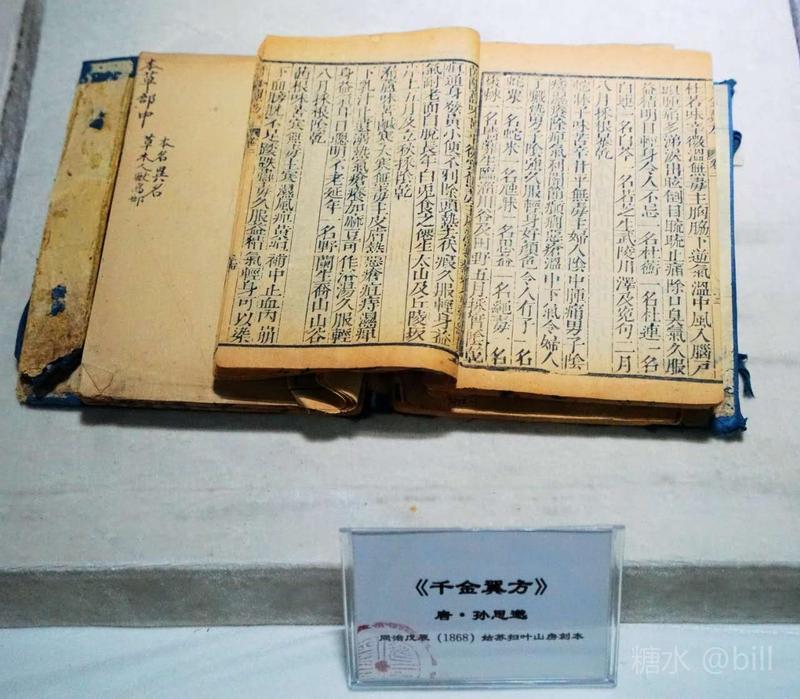 杜若味辛微溫無毒主胸脇下逆氣溫中風入腦戶
頭腫痛多涕淚出眩倒目䀮䀮止痛除口臭氣久服
益精明目輕身令人不忘一名杜蘅一名杜連一名
白連一名白苓一名若芝生武陵川澤及冤句二月
八月採根暴乾
蛇牀子味苦辛甘平無毒主婦人陰中腫痛男子陰
痿濕癢除痺氣利關節癲癇惡瘡溫中下氣令婦人
子臟熱男子陰強久服輕身好顏色令人有子一名
蛇粟一名蛇米一名虺牀一名思益一名繩毒一名
棗棘一名牆蘼生臨淄川谷及田野五月採實陰乾
疸通身發黃小便不利除頭熱去伏瘕久服輕身益
氣耐老面白悅長年白兔食之僊生太山及丘陵坂
岸上五月及立秋採陰乾
漏蘆味苦鹹寒大寒無毒主皮膚熱惡瘡疽痔濕痺
下乳汁止遺溺熱氣瘡癢如麻豆可作浴湯久服輕
身益氣耳目聰明不老延年一名野蘭生喬山山谷
八月採根陰乾
茜根味苦寒無毒主寒濕風痺黃疸補中止血內崩
下血膀胱不足踒跌蠱毒久服益精氣輕身可以染
本草部中
本名異名
草木人獸鳥部
《千金翼方》
唐·孙思邈
同治戊辰（1868）姑苏扫叶山房刻本
糖水 @bill